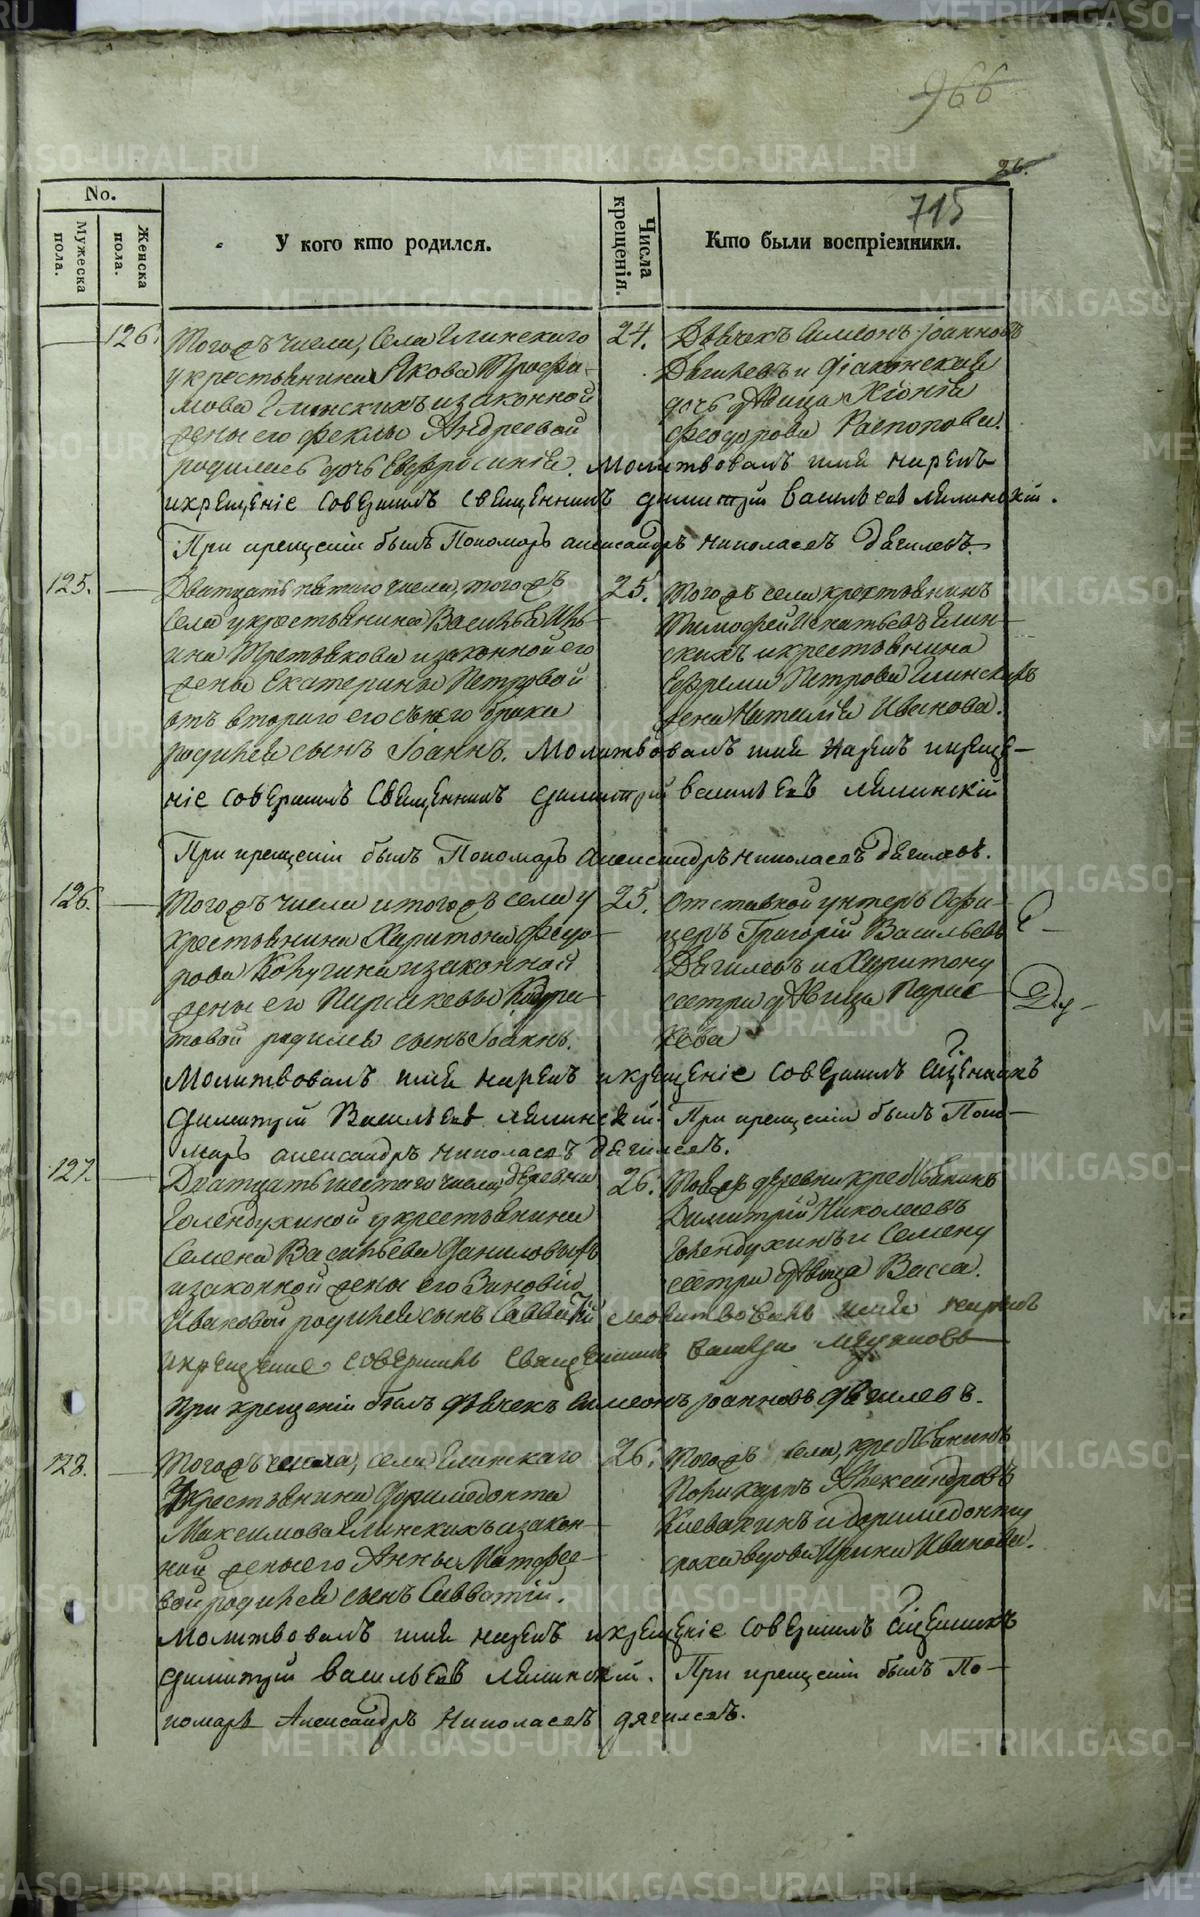 966
26.
715
No.
Мужеска пола.
Женска пола.
У кого кто родился.
Числа крещенія.
Кто были воспріемники.
126.
Тогожъ числа, Села Глинскаго
у крестьянина Якова Трофи-
мова Глинскихъ и законной
жены его Феклы Андреевой
родилась дочь Евфросинія. Молитвовалъ имя нарекъ
и крещеніе совершилъ священникъ Димитрій Васильевъ
При крещеніи былъ Пономарь Александръ Николаевъ Дягилевъ.
24.
Дьячекъ Симеонъ Іоанновъ
Дягилевъ и діаконская
дочь дѣвица Хіонія
Феодорова Распопова.
125.
Дватцать пятаго числа, тогожъ
села у крестьянина Василья
Третьякова и законной его
жены Екатерины Петровой
отъ втораго его съ нею брака
родился сынъ Іоаннъ. Молитвовалъ имя нарекъ и креще-
ніе совершилъ Священникъ Димитрій Васильевъ
При крещеніи былъ Пономарь Александръ Николаевъ Дягилевъ.
25.
Тогожъ села крестьянинъ
Тимофей Игнатьевъ Глин-
скихъ и крестьянина
Ефрема Петрова Глинскихъ
жена Наталія Иванова.
126.
Тогожъ числа и тогожъ села у
крестьянина Харитона Федо-
рова и законной
жены его Параскевы
родился сынъ Іоаннъ.
Молитвовалъ имя нарекъ и крещеніе совершилъ Сщенникъ
Димитрій Васильевъ При крещеніи былъ Поно-
марь Александръ Николаевъ Дягилевъ.
25.
Отставной унтеръ Офи-
церъ Григорій Васильевъ
Дягилевъ и Харитону
сестра дѣвица Парас-
кева
127.
Дватцать шестаго числа, деревни
Голендухиной у крестьянина
Семена Васильева Даниловыхъ
и законной жены его Зиновіи
Ивановой родился сынъ Савватій молитвовалъ имя нарекъ
и крещеніе совершилъ Священникъ
При крещеніи былъ Дьячекъ Симеонъ Іоанновъ Дягилевъ.
26.
Тойже деревни крестьянинъ
Димитрій Николаевъ
Голендухинъ и Семену
сестра дѣвица Васса.
128.
Тогожъ числа, села Глинскаго
у крестьянина Доримедонта
Максимова Глинскихъ и закон-
ной жены его Анны Матфее-
вой родился сынъ Савватій.
Молитвовалъ имя нарекъ и крещеніе совершилъ Сщенникъ
Димитрій Васильевъ При крещеніи былъ По-
номарь Александръ Николаевъ Дягилевъ.
26.
Тогожъ села, крестьянинъ
Поликарпъ Александровъ
и Доримидонту
вдова Ирина Иванова.
METRIKI.GASO-URAL.RU